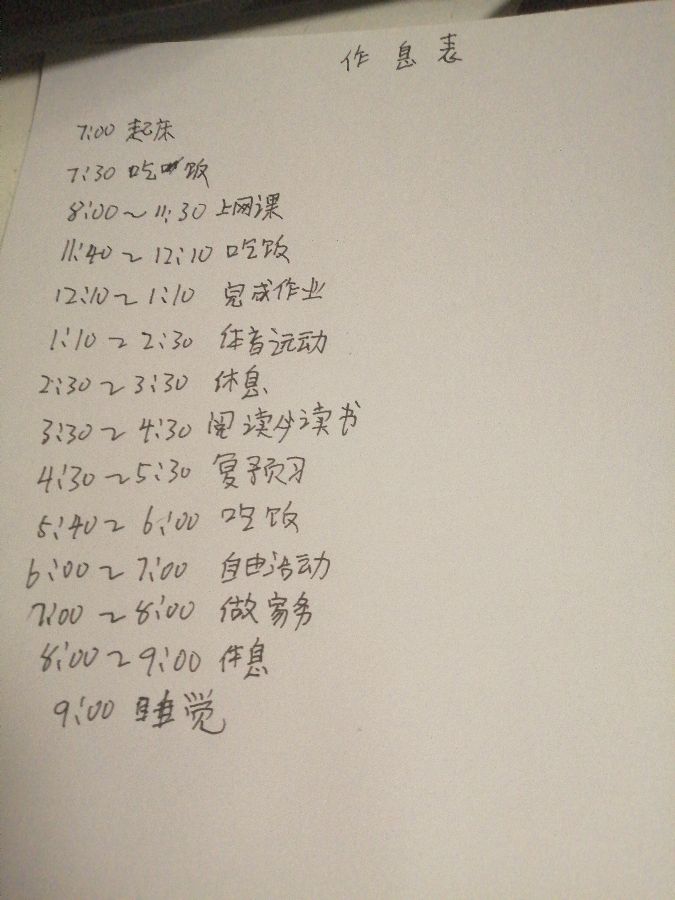 作息表
7:00 起床
7:30 吃饭
8:00~11:30 上网课
11:40~12:10 吃饭
12:10~1:10 完成作业
1:10~2:30 体育运动
2:30~3:30 休息
3:30~4:30 阅读必读书
4:30~5:30 复予页习
5:40~6:00 吃饭
6:00~7:00 自由活动
7:00~8:00 做家务
8:00~9:00 休息
9:00 睡觉